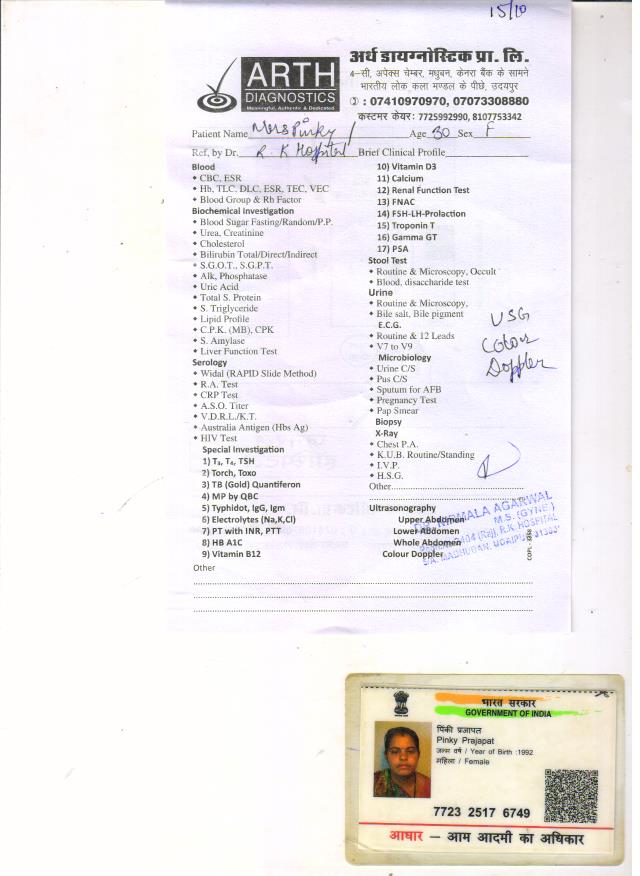 15/10
ARTH
DIAGNOSTICS
Meaningful, Authentic & Dedicated
अर्थ डायग्नोस्टिक प्रा. लि.
4-सी, अपेक्स चेम्बर, मधुबन, केनरा बैंक के सामने
भारतीय लोक कला मण्डल के पीछे, उदयपुर
: 07410970970, 07073308880
कस्टमर केयर: 7725992990, 8107753342
Patient Name Mrs Pinky Age 30 Sex F
Ref, by Dr. R. K Hospital Brief Clinical Profile
Blood
CBC, ESR
Hb, TLC, DLC, ESR, TEC, VEC
Blood Group & Rh Factor
Biochemical Investigation
Blood Sugar Fasting/Random/P.P.
Urea, Creatinine
Cholesterol
Bilirubin Total/Direct/Indirect
S.G.O.T., S.G.P.T.
Alk, Phosphatase
Uric Acid
Total S. Protein
S. Triglyceride
Lipid Profile
C.P.K. (MB), CPK
S. Amylase
Liver Function Test
Serology
Widal (RAPID Slide Method)
R.A. Test
CRP Test
A.S.O. Titer
V.D.R.L./K.T.
Australia Antigen (Hbs Ag)
HIV Test
Special Investigation
1) T₃, T₄, TSH
2) Torch, Toxo
3) TB (Gold) Quantiferon
4) MP by QBC
5) Typhidot, IgG, Igm
6) Electrolytes (Na,K,Cl)
7) PT with INR, PTT
8) HB A1C
9) Vitamin B12
Other
10) Vitamin D3
11) Calcium
12) Renal Function Test
13) FNAC
14) FSH-LH-Prolaction
15) Troponin T
16) Gamma GT
17) PSA
Stool Test
Routine & Microscopy, Occult
Blood, disaccharide test
Urine
Routine & Microscopy,
Bile salt, Bile pigment
E.C.G.
Routine & 12 Leads
V7 to V9
Microbiology
Urine C/S
Pus C/S
Sputum for AFB
Pregnancy Test
Pap Smear
Biopsy
X-Ray
Chest P.A.
K.U.B. Routine/Standing
I.V.P.
H.S.G.
Other
Ultrasonography
Upper Abdomen
Lower Abdomen
Whole Abdomen
Colour Doppler
USG
Colour
Doppler
NIRMALA AGARWAL
M.S. (GYNE.)
(Raj), R.K. HOSPITAL
MADHUBAN, UDAIPUR
भारत सरकार
GOVERNMENT OF INDIA
पिंकी प्रजापत
Pinky Prajapat
जन्म वर्ष / Year of Birth :1992
महिला / Female
7723 2517 6749
आधार – आम आदमी का अधिकार